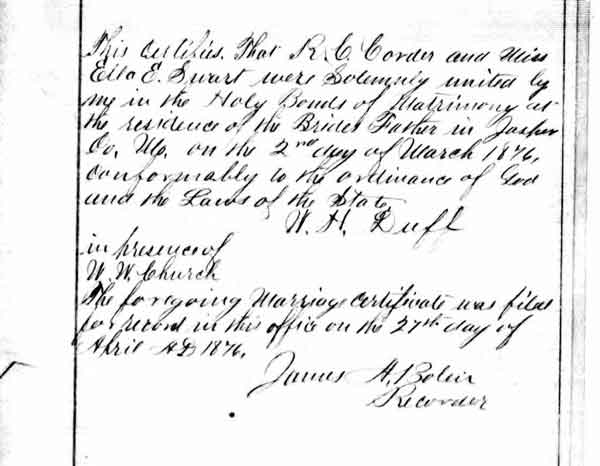 This certifies. That R. C. Corder and Miss
Ella E. Swart were Solemnly united by
me in the Holy Bonds of Matrimony at
the residence of the Brides Father in Jasper
Co, Mo. on the 2nd day of March 1876,
conformably to the ordinance of God
and the Laws of the State,
W. H. Duff
in presence of
W. W. Church
The foregoing Marriage certificate was filed
for record in this office on the 27th day of
April AD 1876,
James A. Bolin
Recorder